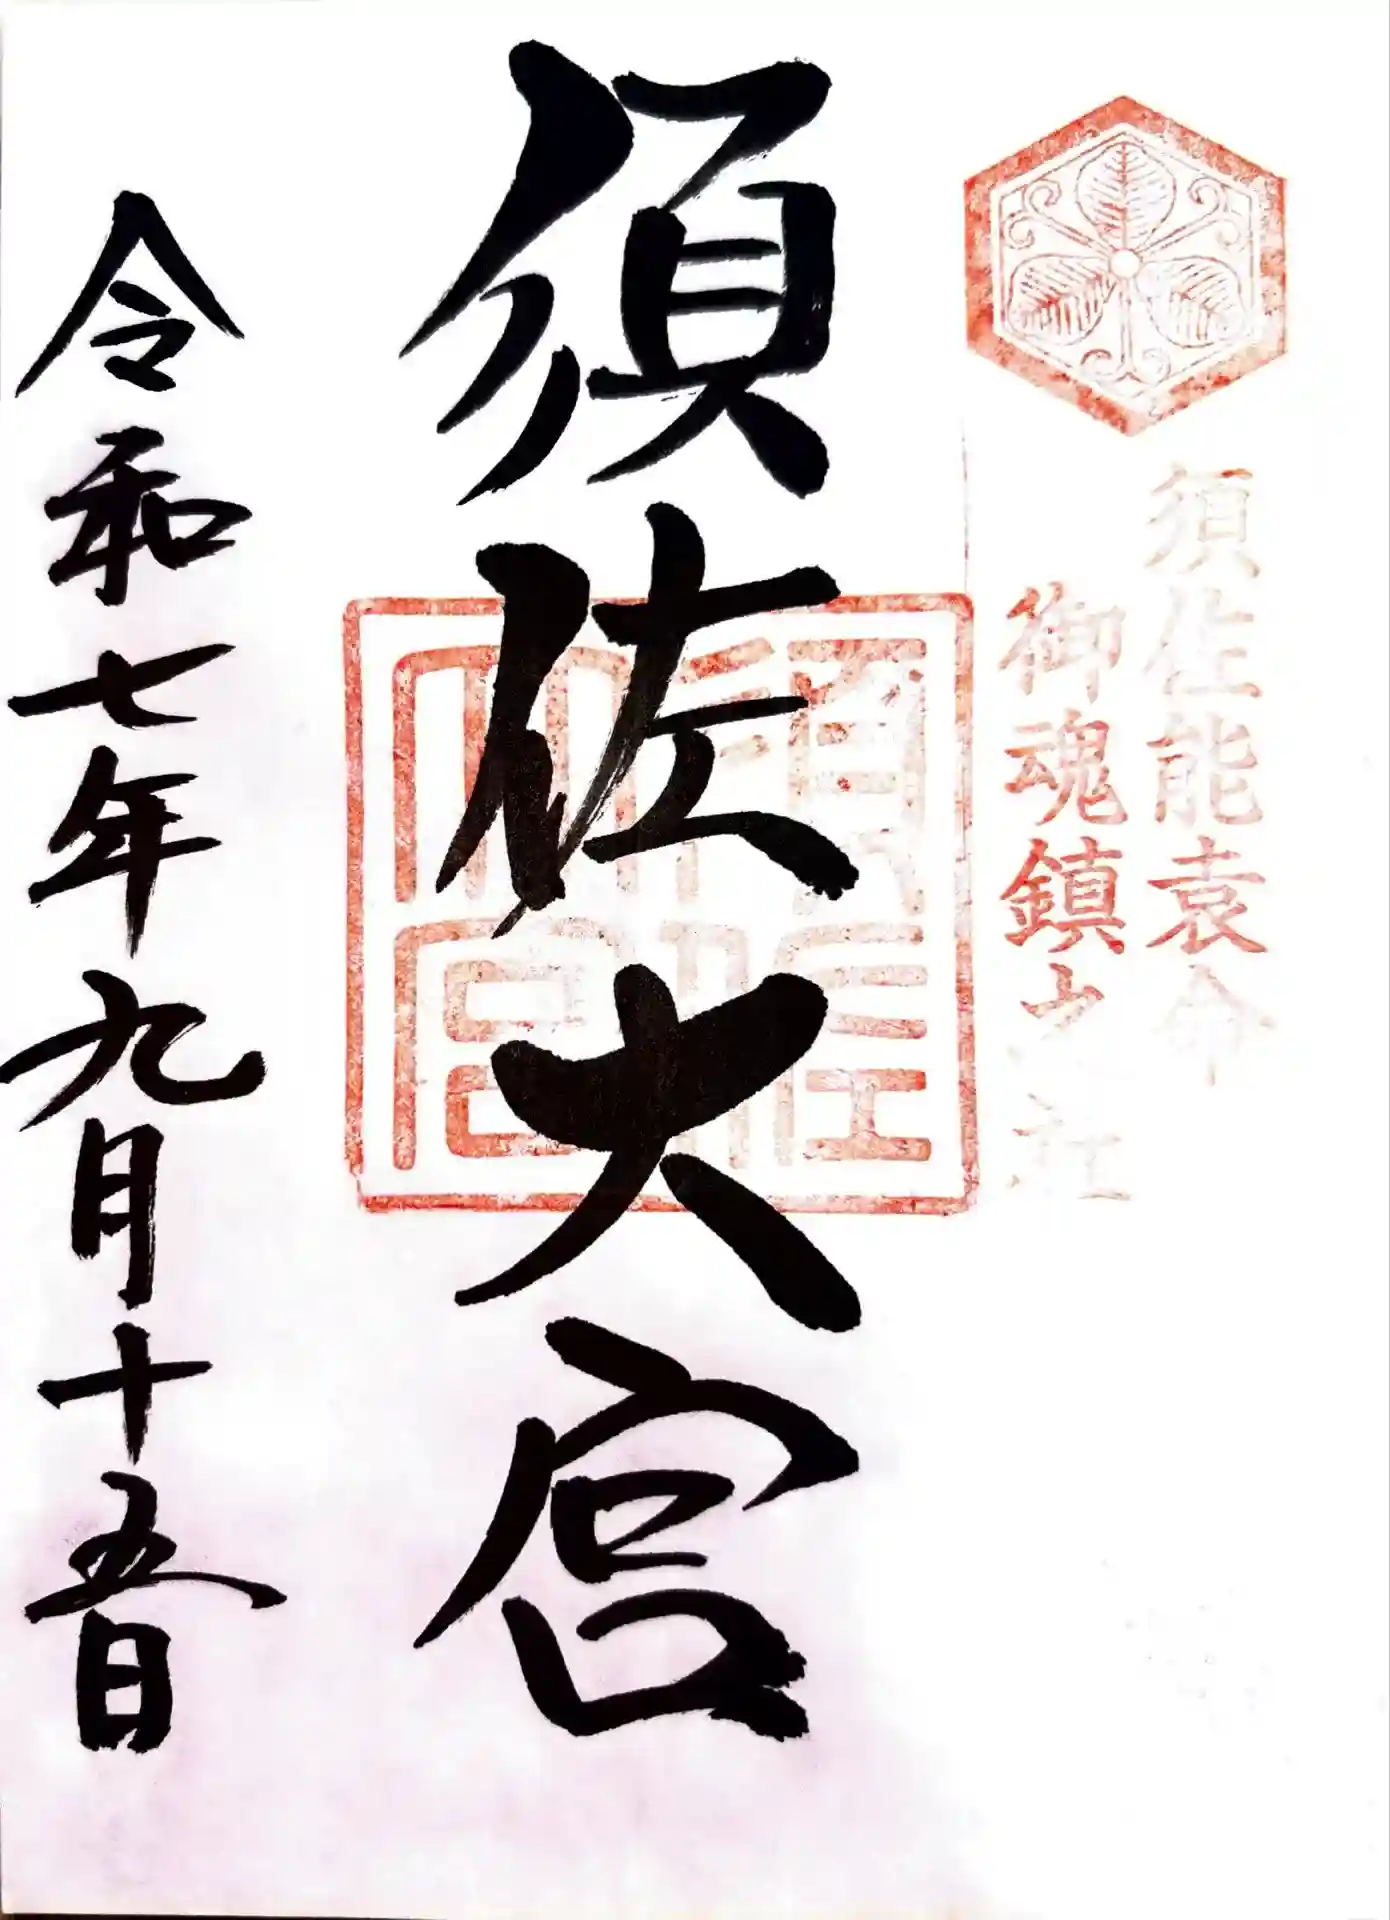 須佐能袁命
御魂鎮之社
須佐大宮
須佐大宮
令和七年九月十五日